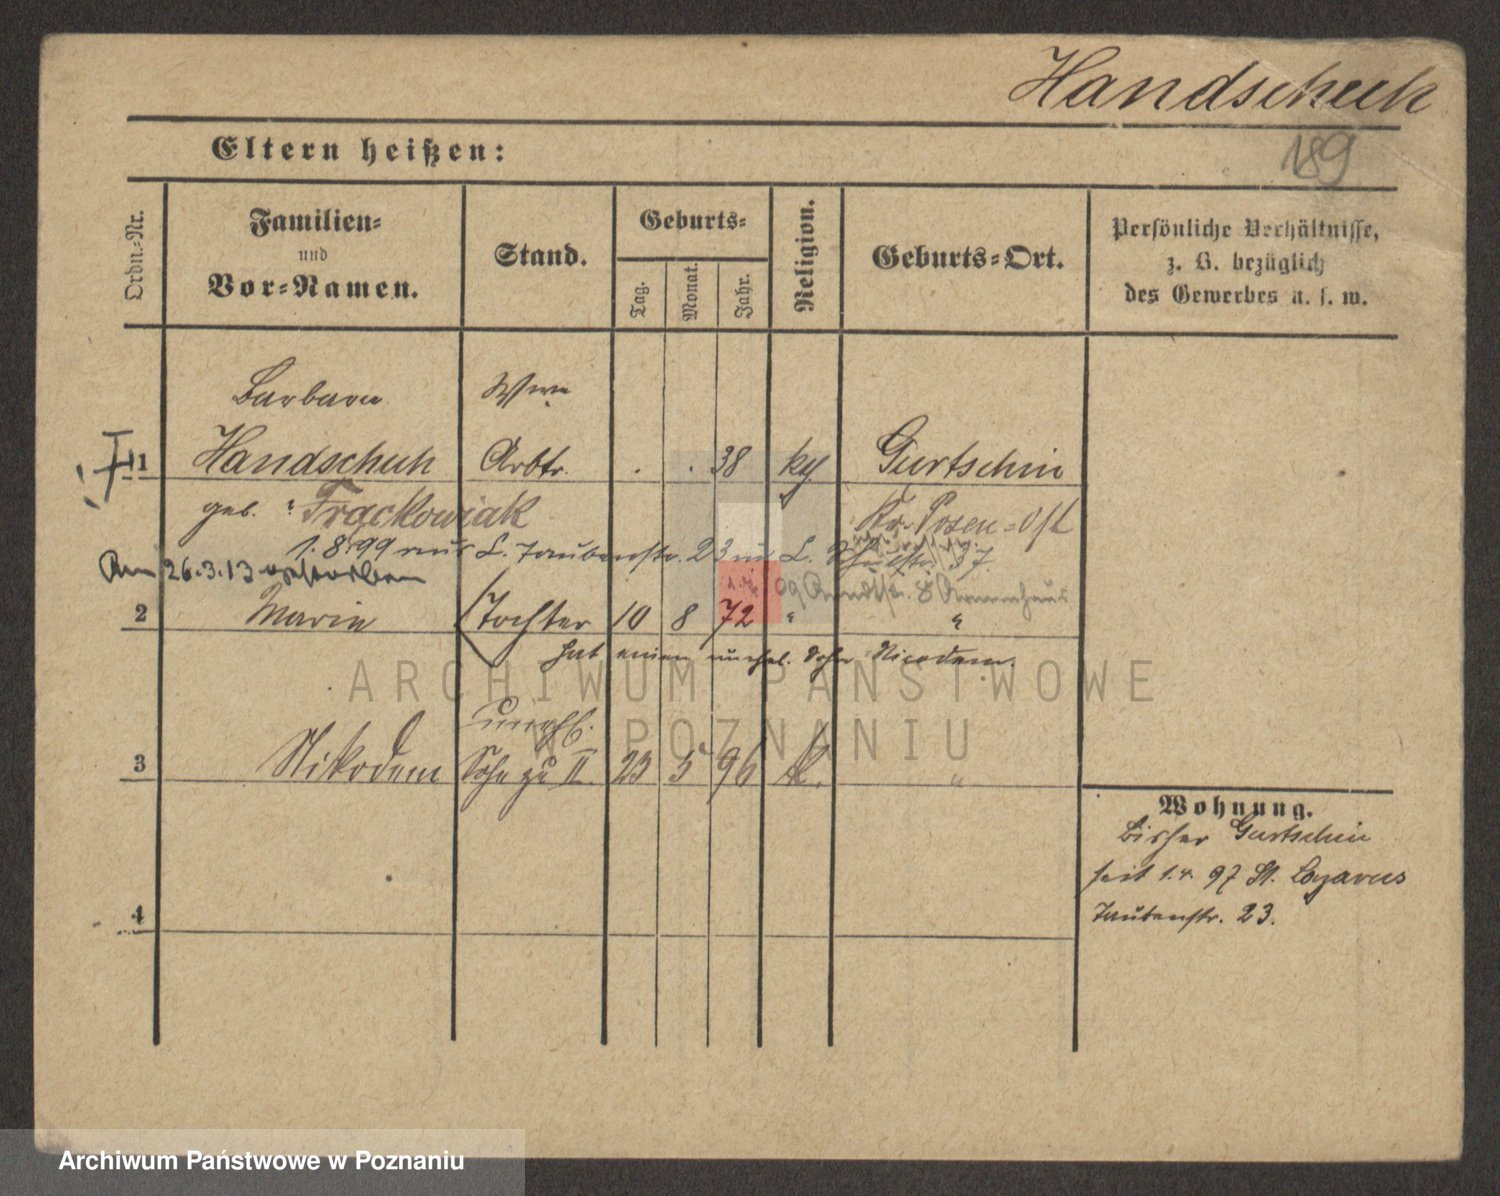 Handschuh
189
Eltern heißen:
Ordn.-Nr.
Familien-
und
Vor-Namen.
Stand.
Geburts-
Tag.
Monat.
Jahr.
Religion.
Geburts-Ort.
Persönliche Verhältnisse,
z. B. bezüglich
des Gewerbes u. s. w.
Barbara Wwe
1 Handschuh Arbtr. . . 38 kth Gurtschin
geb. Frąckowiak Kr. Posen-Ost
1.8.99 aus L. Taubenstr. 23 in L. 37.
Am 26.3.13 gestorben
09 Arndtstr. 8 Armenhaus
2 Marie Tochter 10 8 72 " "
hat einen unehel. Sohn Nicodem.
unehl.
3 Nikodem Sohn zu II 23 5 96 k. "
4
Wohnung.
bisher Gurtschin
seit 1.4.97 St. Lazarus
Taubenstr. 23.
ARCHIWUM PAŃSTWOWE
W POZNANIU
Archiwum Państwowe w Poznaniu